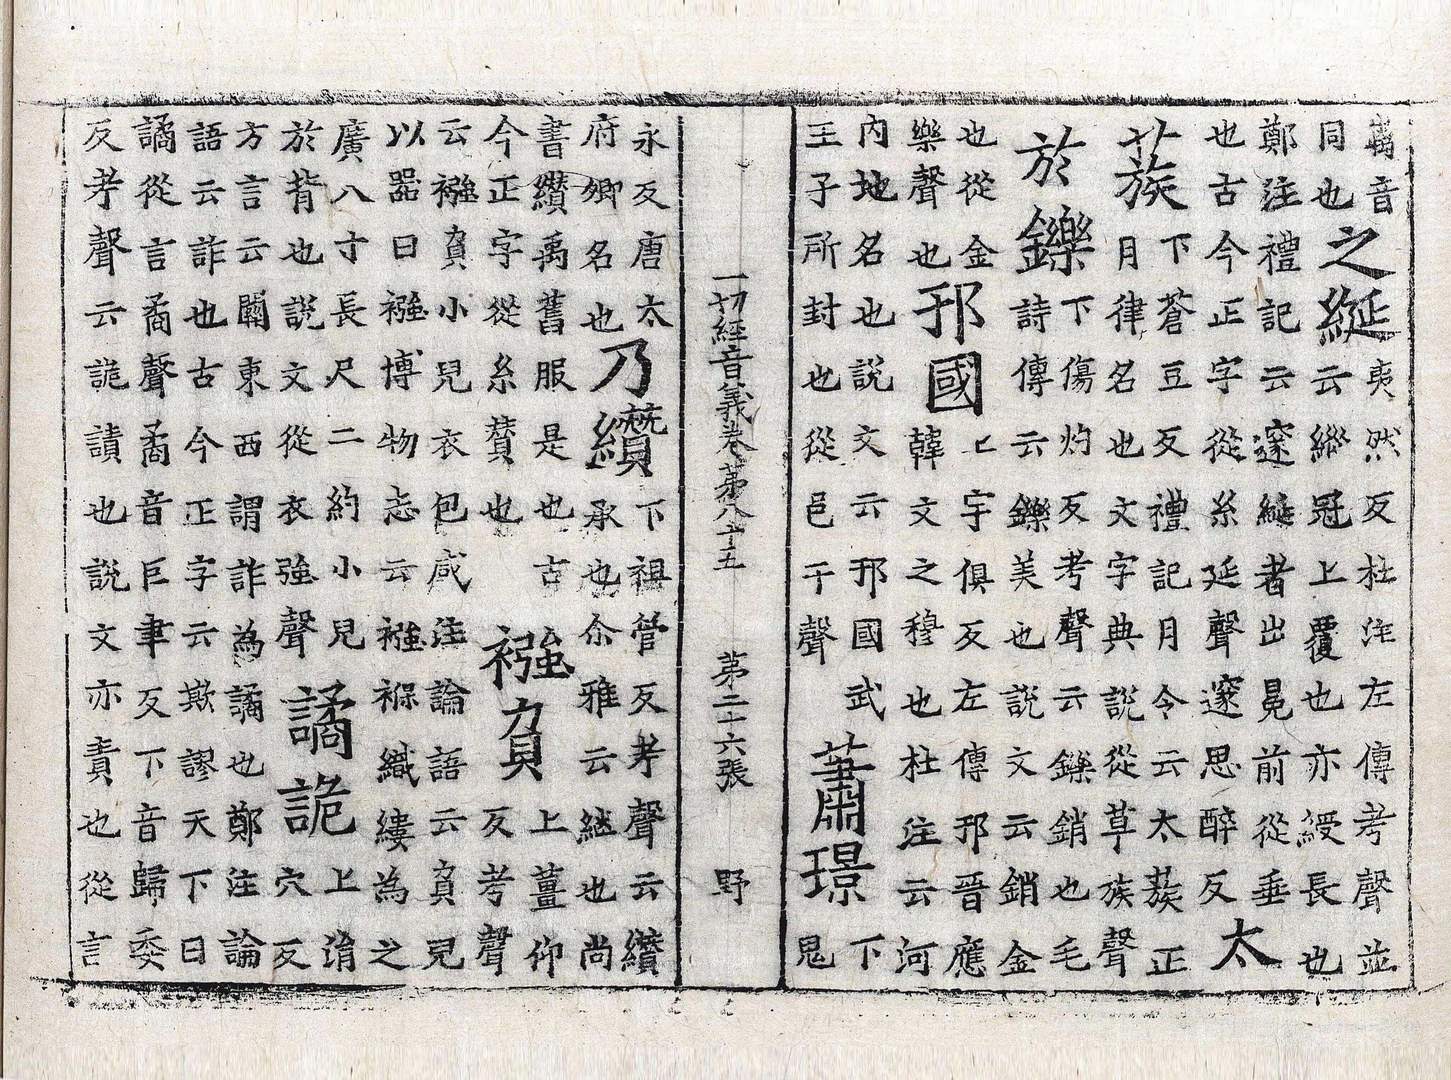 譪音同也之綖夷然反杜注左傳考聲並云縱冠上覆也亦綬長也
鄭注禮記云邃綖者出冕前從垂也古今正字從糸延聲邃思醉反太
蔟下蒼豆反禮記月令云太蔟正月律名也文字典說從草族聲
於鑠下傷灼反考聲云鑠銷也毛詩傳云鑠美也說文云銷金
也從金樂聲也邘國上宇俱反左傳邘晉應韓文之穆也杜注云河
內地名也說文云邘國武王子所封也從邑于聲蕭璟下鬼
一切經音義卷第八十五 第二十六張 野
永反唐太府卿名也乃纘下祖管反考聲云纘承也尒雅云継也尚
書纘禹舊服是也古今正字從糸贊也襁負上薑仰反考聲
云襁負小兒衣包咸注論語云負兒以器曰襁博物志云襁褓織縷為之
廣八寸長尺二約小兒於背也說文從衣強聲譎詭上涓穴反
方言云關東西謂詐為譎也鄭注論語云詐也古今正字云欺謬天下曰
譎從言矞聲矞音巨聿反下音歸委反考聲云詭讀也說文亦責也從言